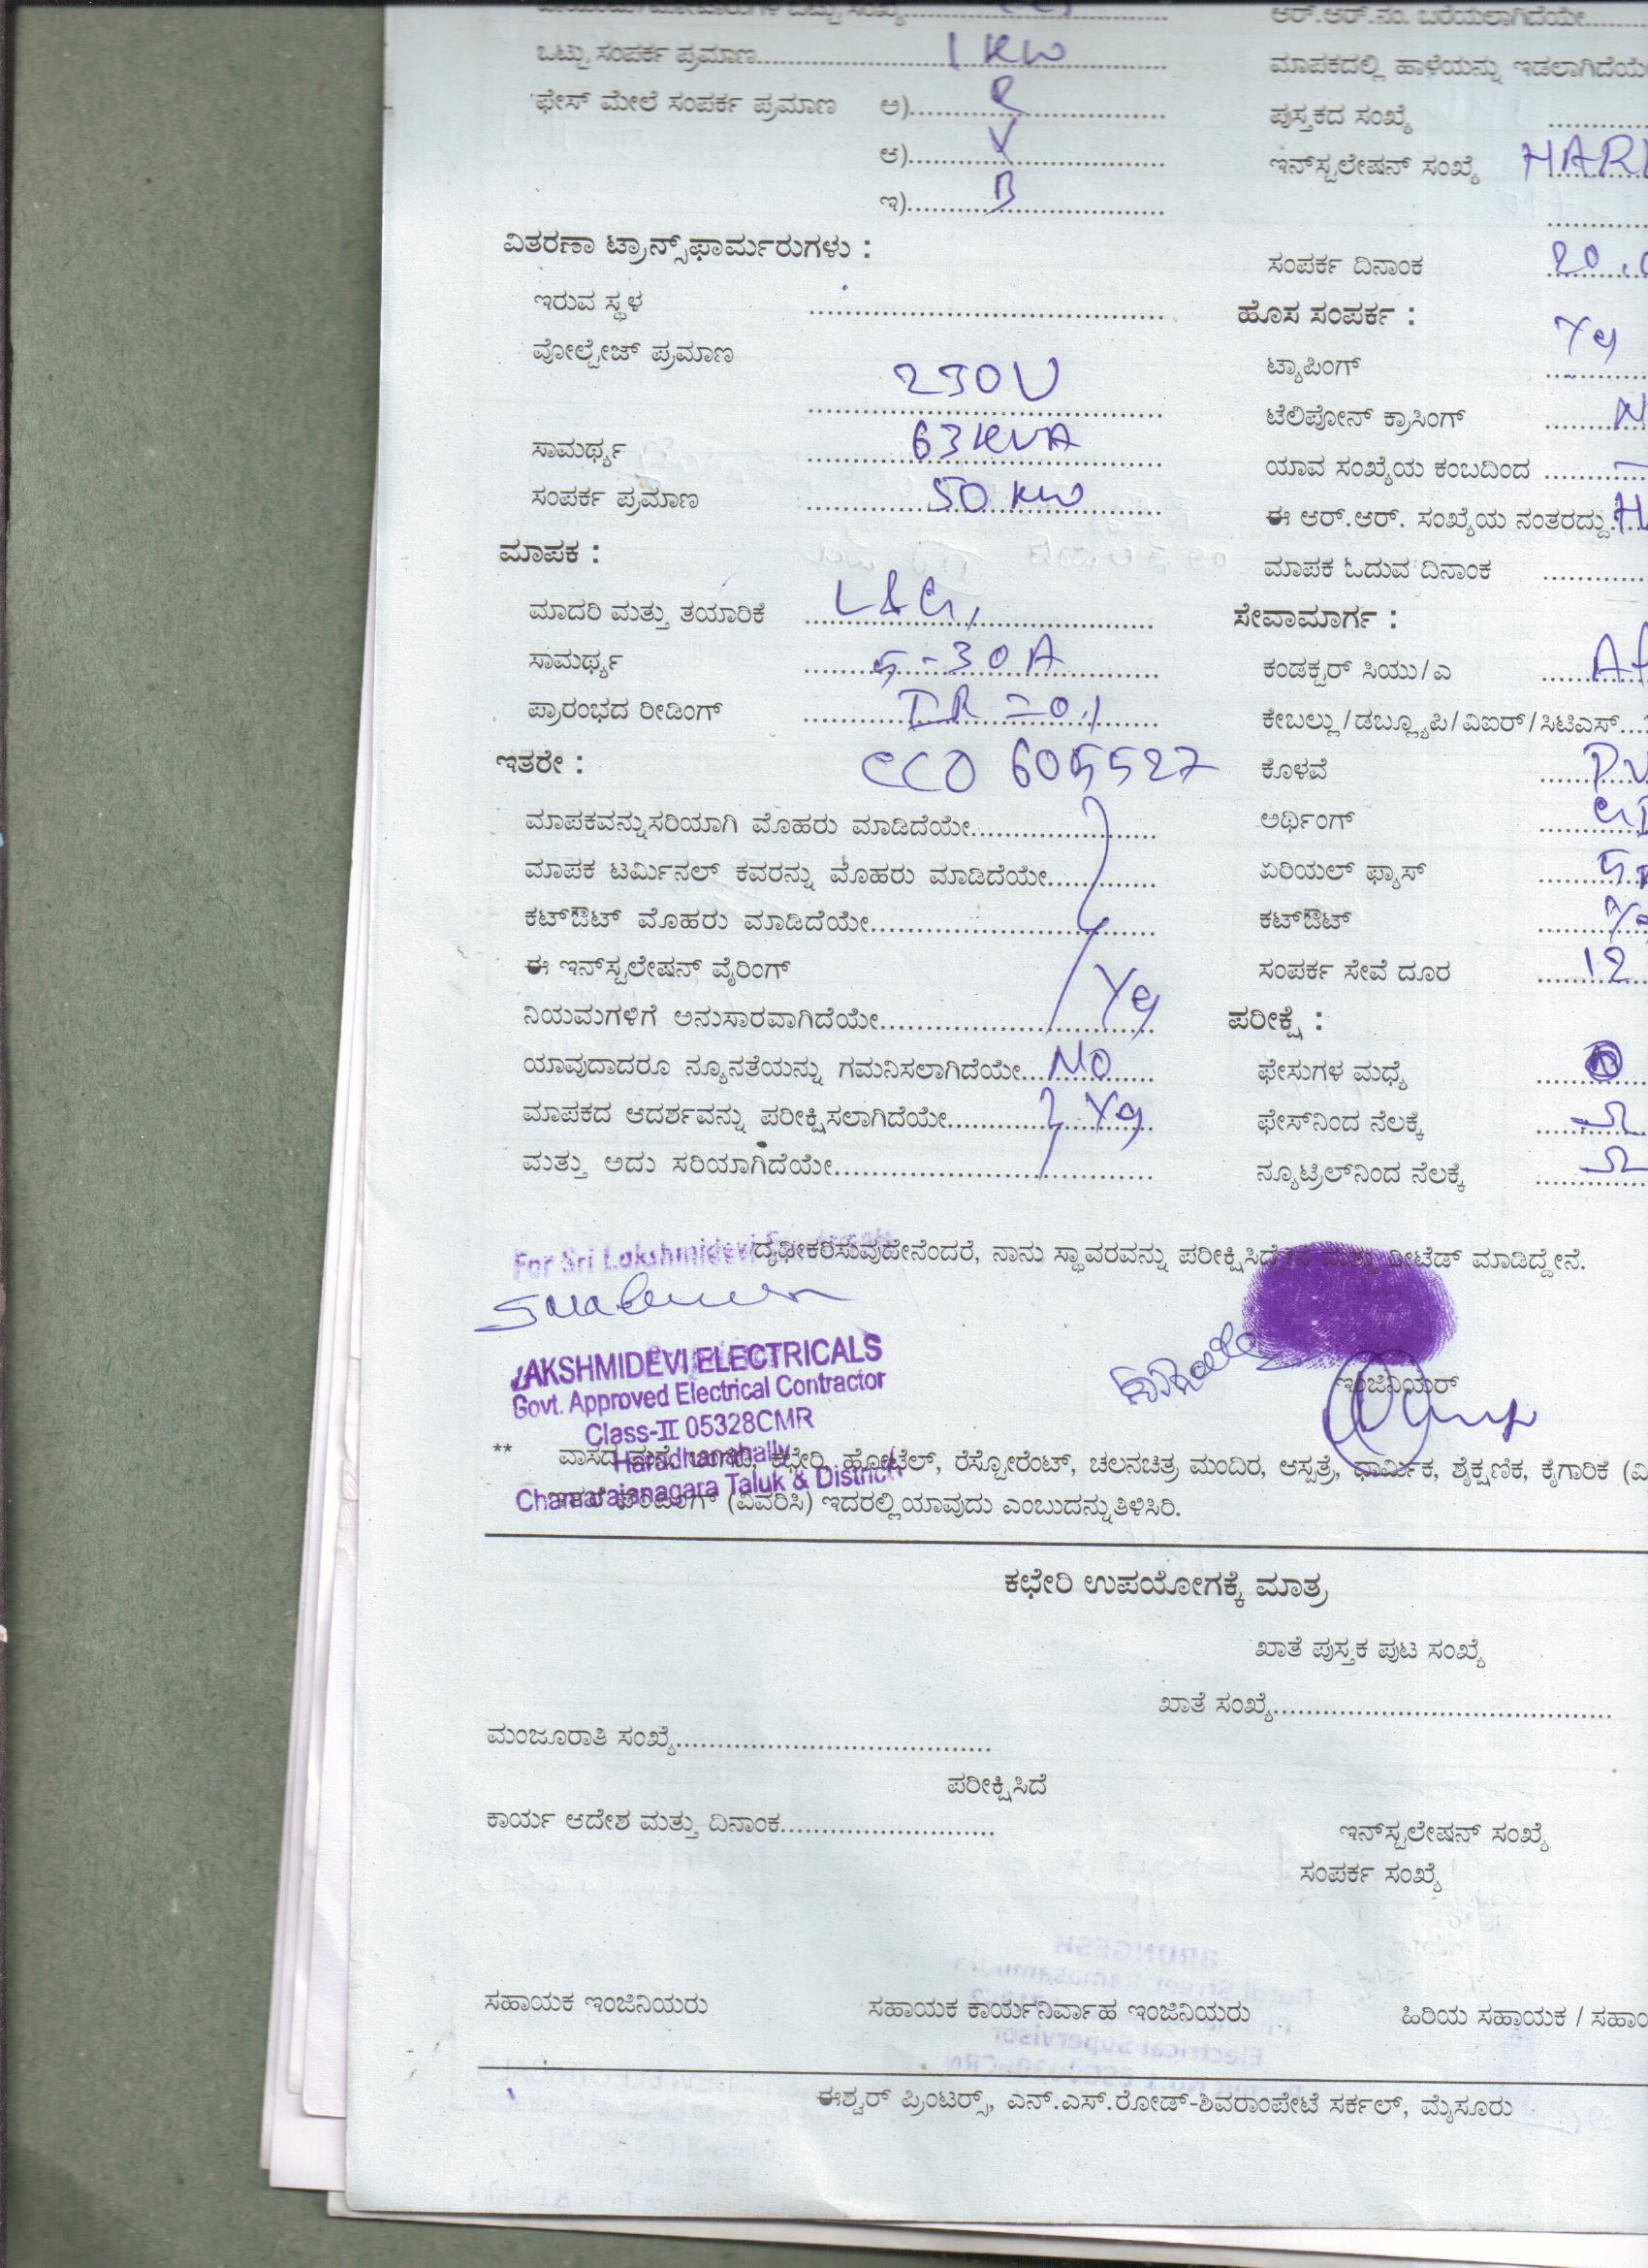 ಒಟ್ಟು ಸಂಪರ್ಕ ಪ್ರಮಾಣ 1 KW
ಫೇಸ್ ಮೇಲೆ ಸಂಪರ್ಕ ಪ್ರಮಾಣ ಅ) R
ಆ) Y
ಇ) B
ವಿತರಣಾ ಟ್ರಾನ್ಸ್‌ಫಾರ್ಮರುಗಳು :
ಇರುವ ಸ್ಥಳ
ವೋಲ್ಟೇಜ್ ಪ್ರಮಾಣ 230V
ಸಾಮರ್ಥ್ಯ 63 KVA
ಸಂಪರ್ಕ ಪ್ರಮಾಣ 50 KW
ಮಾಪಕ :
ಮಾದರಿ ಮತ್ತು ತಯಾರಿಕೆ L&G,
ಸಾಮರ್ಥ್ಯ 5-30A
ಪ್ರಾರಂಭದ ರೀಡಿಂಗ್ IR = 0.1
ಇತರೇ : CCO 605527
ಮಾಪಕವನ್ನು ಸರಿಯಾಗಿ ಮೊಹರು ಮಾಡಿದೆಯೇ
ಮಾಪಕ ಟರ್ಮಿನಲ್ ಕವರನ್ನು ಮೊಹರು ಮಾಡಿದೆಯೇ
ಕಟ್‌ಔಟ್ ಮೊಹರು ಮಾಡಿದೆಯೇ
ಈ ಇನ್‌ಸ್ಟಲೇಷನ್ ವೈರಿಂಗ್
ನಿಯಮಗಳಿಗೆ ಅನುಸಾರವಾಗಿದೆಯೇ Yes
ಯಾವುದಾದರೂ ನ್ಯೂನತೆಯನ್ನು ಗಮನಿಸಲಾಗಿದೆಯೇ NO
ಮಾಪಕದ ಆದರ್ಶವನ್ನು ಪರೀಕ್ಷಿಸಲಾಗಿದೆಯೇ Yes
ಮತ್ತು ಅದು ಸರಿಯಾಗಿದೆಯೇ
ಆರ್.ಆರ್.ನಂ. ಬರೆಯಲಾಗಿದೆಯೇ
ಮಾಪಕದಲ್ಲಿ ಹಾಳೆಯನ್ನು ಇಡಲಾಗಿದೆಯೇ
ಪುಸ್ತಕದ ಸಂಖ್ಯೆ
ಇನ್‌ಸ್ಟಲೇಷನ್ ಸಂಖ್ಯೆ
ಸಂಪರ್ಕ ದಿನಾಂಕ 20.
ಹೊಸ ಸಂಪರ್ಕ :
ಟ್ಯಾಪಿಂಗ್ Yes
ಟೆಲಿಪೋನ್ ಕ್ರಾಸಿಂಗ್
ಯಾವ ಸಂಖ್ಯೆಯ ಕಂಬದಿಂದ
ಈ ಆರ್.ಆರ್. ಸಂಖ್ಯೆಯ ನಂತರದ್ದು
ಮಾಪಕ ಓದುವ ದಿನಾಂಕ
ಸೇವಾಮಾರ್ಗ :
ಕಂಡಕ್ಟರ್ ಸಿಯು/ಎ
ಕೇಬಲ್ಲು/ಡಬ್ಲ್ಯೂಪಿ/ವಿಐರ್/ಸಿಟಿಎಸ್
ಕೊಳವೆ
ಅರ್ಥಿಂಗ್
ಏರಿಯಲ್ ಫ್ಯಾಸ್
ಕಟ್‌ಔಟ್
ಸಂಪರ್ಕ ಸೇವೆ ದೂರ 12
ಪರೀಕ್ಷೆ :
ಫೇಸುಗಳ ಮಧ್ಯೆ
ಫೇಸ್‌ನಿಂದ ನೆಲಕ್ಕೆ
ನ್ಯೂಟ್ರಿಲ್‌ನಿಂದ ನೆಲಕ್ಕೆ
For Sri Lakshmidevi
ದೃಢೀಕರಿಸುವುದೇನೆಂದರೆ, ನಾನು ಸ್ಥಾವರವನ್ನು ಪರೀಕ್ಷಿಸಿದ್ದೇನೆ ಮತ್ತು ಮಾಡಿದ್ದೇನೆ.
LAKSHMIDEVI ELECTRICALS
Govt. Approved Electrical Contractor
Class-II 05328CMR
Haradhanahally
Chamarajanagara Taluk & District
ಇಂಜಿನಿಯರ್
** ವಾಸದ ಮನೆ, ಅಂಗಡಿ, ಕಛೇರಿ, ಹೋಟೆಲ್, ರೆಸ್ಟೋರೆಂಟ್, ಚಲನಚಿತ್ರ ಮಂದಿರ, ಆಸ್ಪತ್ರೆ, ಧಾರ್ಮಿಕ, ಶೈಕ್ಷಣಿಕ, ಕೈಗಾರಿಕೆ
(ವಿವರಿಸಿ) ಇದರಲ್ಲಿ ಯಾವುದು ಎಂಬುದನ್ನು ತಿಳಿಸಿರಿ.
ಕಛೇರಿ ಉಪಯೋಗಕ್ಕೆ ಮಾತ್ರ
ಖಾತೆ ಪುಸ್ತಕ ಪುಟ ಸಂಖ್ಯೆ
ಖಾತೆ ಸಂಖ್ಯೆ
ಮಂಜೂರಾತಿ ಸಂಖ್ಯೆ
ಪರೀಕ್ಷಿಸಿದೆ
ಕಾರ್ಯ ಆದೇಶ ಮತ್ತು ದಿನಾಂಕ
ಇನ್‌ಸ್ಟಲೇಷನ್ ಸಂಖ್ಯೆ
ಸಂಪರ್ಕ ಸಂಖ್ಯೆ
ಸಹಾಯಕ ಇಂಜಿನಿಯರು ಸಹಾಯಕ ಕಾರ್ಯನಿರ್ವಾಹ ಇಂಜಿನಿಯರು ಹಿರಿಯ ಸಹಾಯಕ /
ಈಶ್ವರ್ ಪ್ರಿಂಟರ್ಸ್, ಎನ್.ಎಸ್.ರೋಡ್-ಶಿವರಾಂಪೇಟೆ ಸರ್ಕಲ್, ಮೈಸೂರು